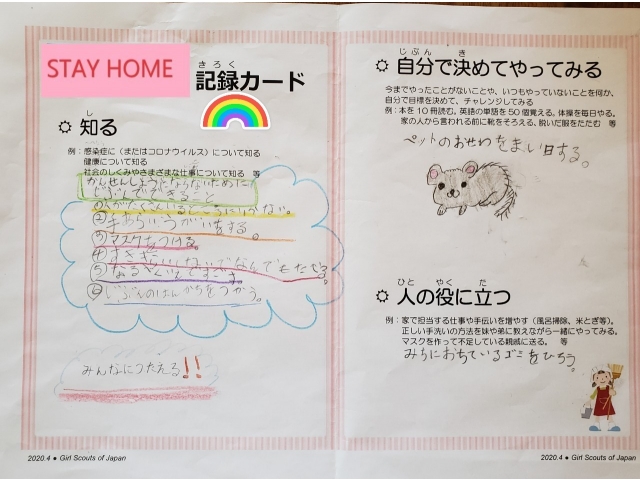 STAY HOME
きろく
記録カード
し
知る
例：感染症に（またはコロナウイルス）について知る
健康について知る
社会のしくみやさまざまな仕事について知る 等
かんせんしょうにならないために
じぶんでできること
①人がたくさんいるところにいかない。
②手あらいうがいをする。
③マスクをつける。
④すききらいしないでなんでもたべる。
⑤なるべく
⑥じぶんのはんかちをつかう。
みんなにつたえる!!
2020.4 ● Girl Scouts of Japan
じぶん き
自分で決めてやってみる
今までやったことがないことや、いつもやっていないことを何か、
自分で目標を決めて、チャレンジしてみる
例：本を10冊読む。英語の単語を50個覚える。体操を毎日やる。
家の人から言われる前に靴をそろえる、脱いだ服をたたむ 等
ペットのおせわをまい日する。
ひと やく た
人の役に立つ
例：家で担当する仕事や手伝いを増やす（風呂掃除、米とぎ等）。
正しい手洗いの方法を妹や弟に教えながら一緒にやってみる。
マスクを作って不足している親戚に送る。 等
みちにおちているゴミをひろう。
2020.4 ● Girl Scouts of Japan